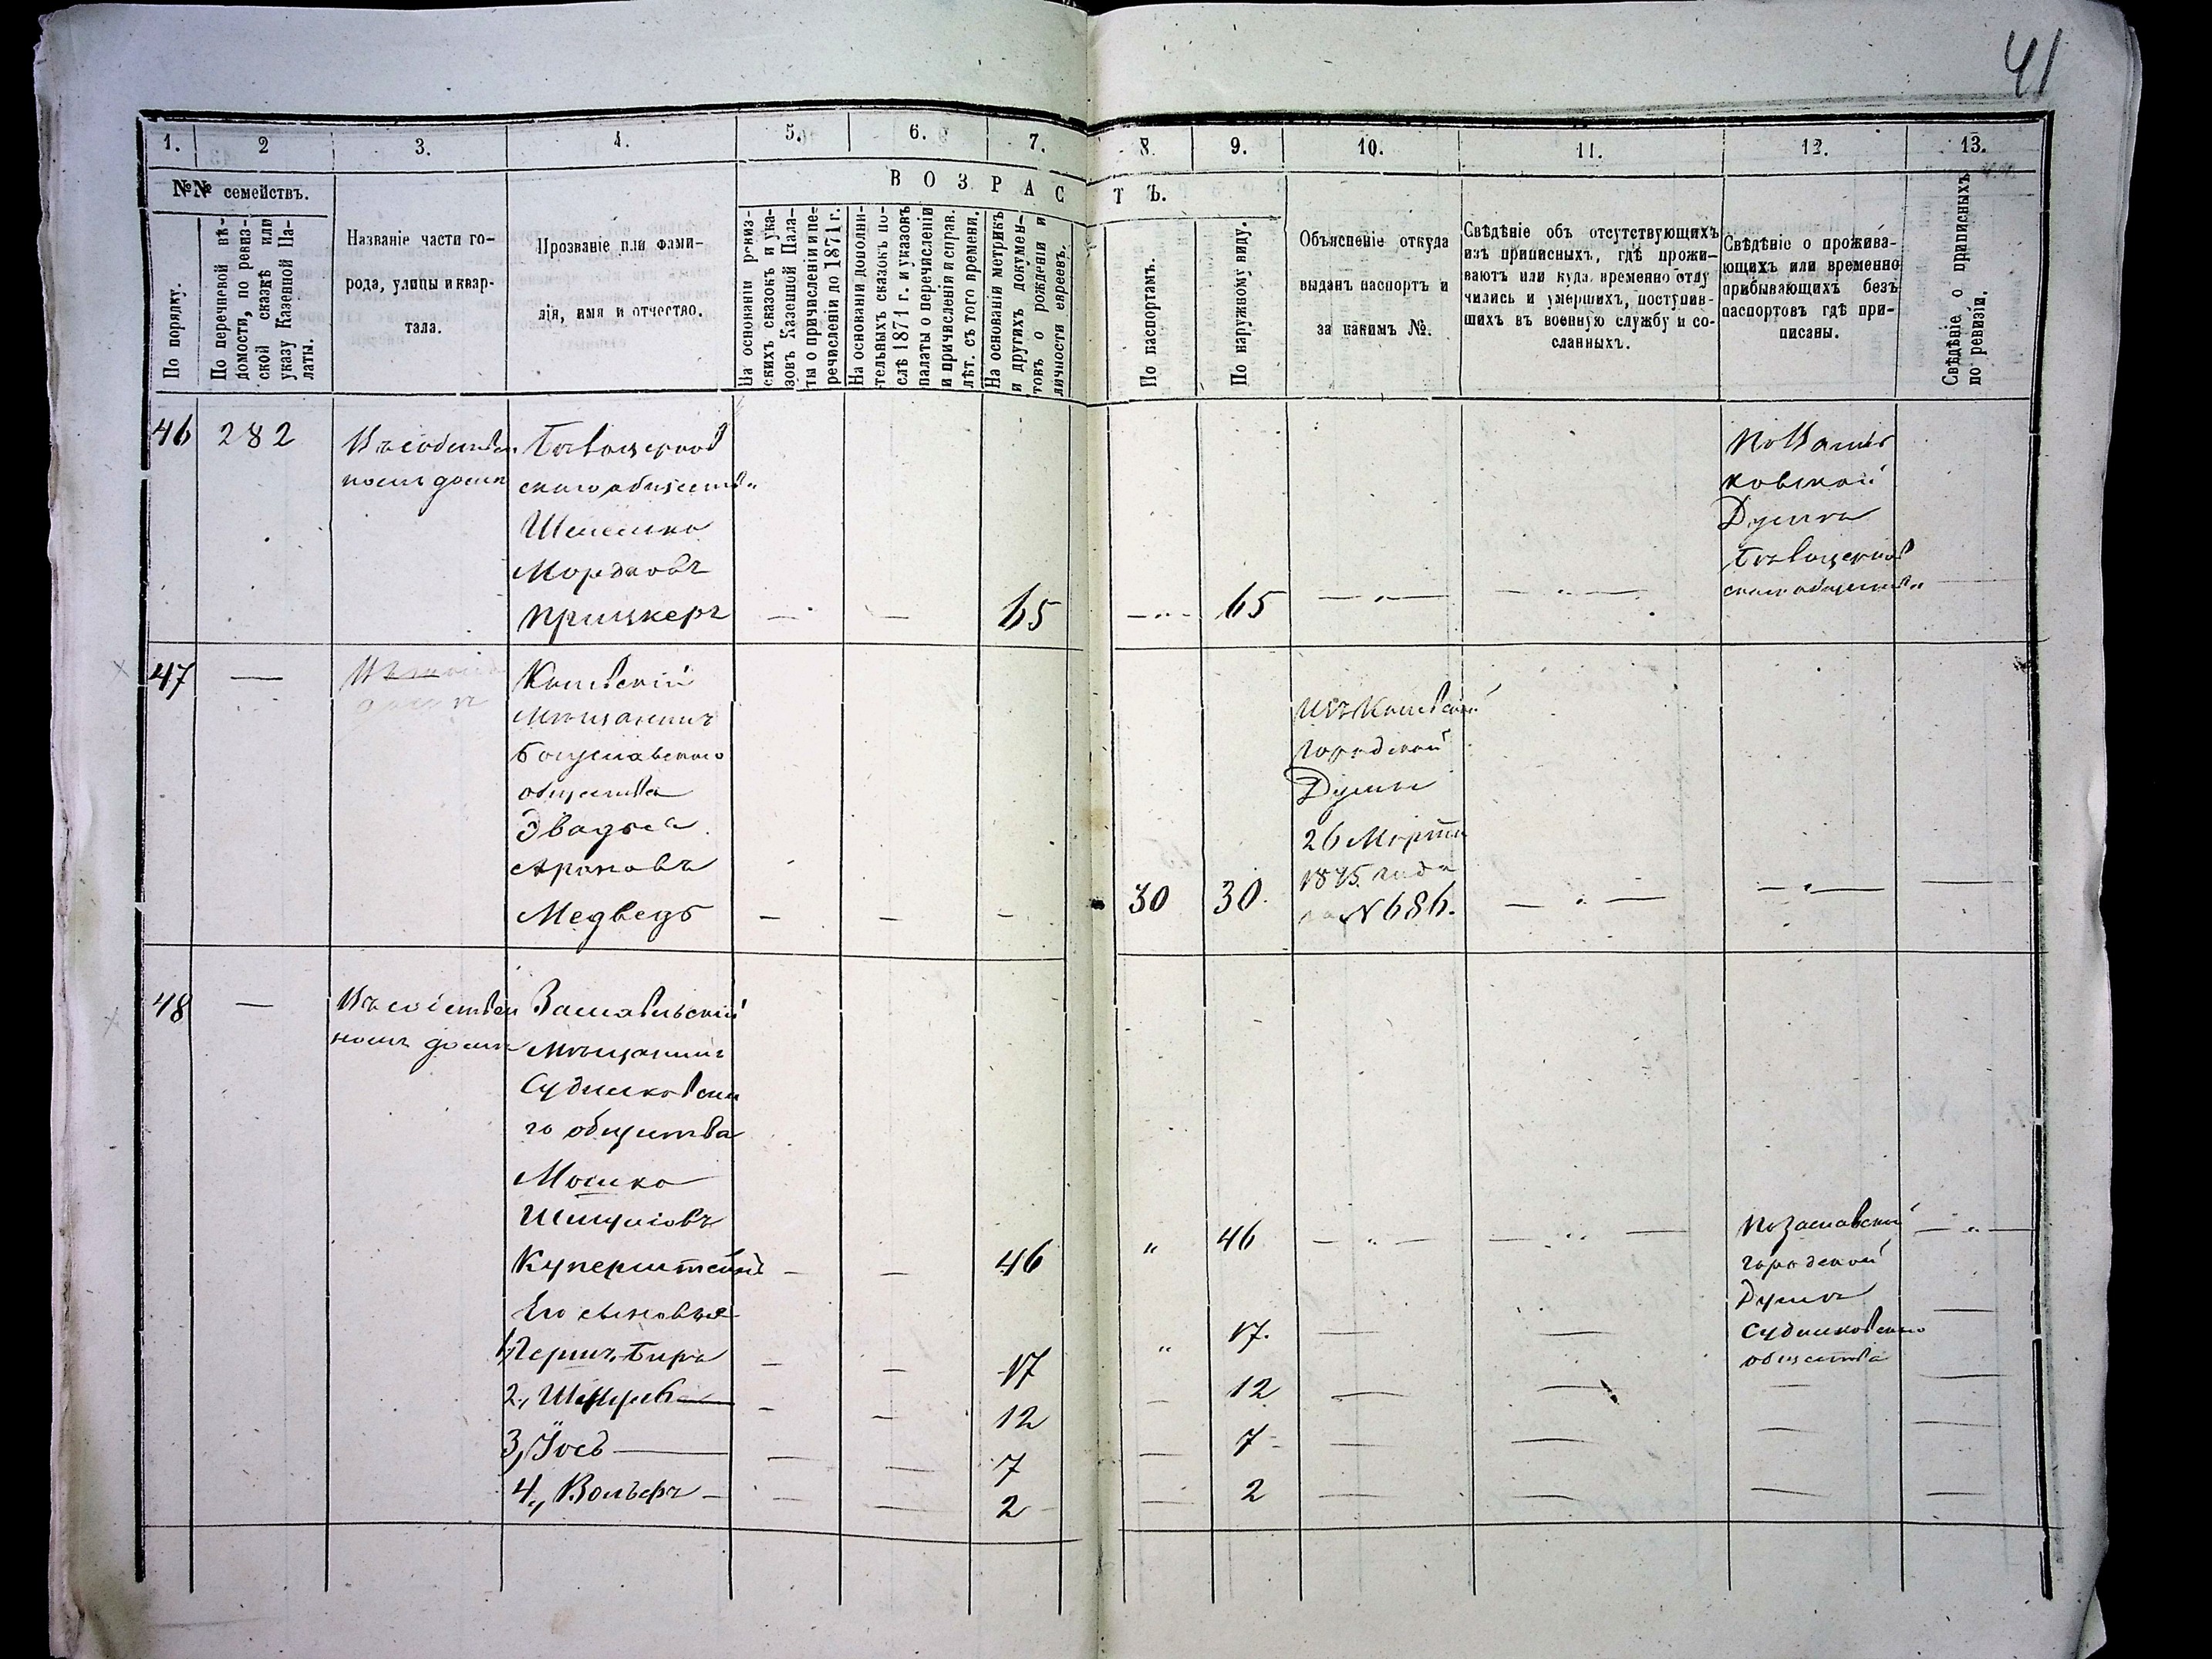 41
1. 2 3. 4. 5. 6. 7. 8. 9. 10. 11. 12. 13.
№№ семействъ.
ВОЗРАСТЪ.
По порядку.
По перечневой вѣ-
домости, по ревиз-
ской сказкѣ или
указу Казенной Па-
латы.
Названіе части го-
рода, улицы и квар-
тала.
Прозваніе или фами-
лія, имя и отчество.
На основаніи ревиз-
скихъ сказокъ и ука-
зовъ Казенной Пала-
ты о причисленіи и пе-
речисленіи до 1871 г.
На основаніи дополни-
тельныхъ сказокъ по-
слѣ 1871 г. и указовъ
палаты о перечисленіи
и причисленіи и справ.
лѣт. съ того времени.
На основаніи метрикъ
и другихъ докумен-
товъ о рожденіи и
личности евреевъ.
По паспортамъ.
По наружному виду.
Объясненіе откуда
выданъ паспортъ и
за какимъ №.
Свѣдѣніе объ отсутствующихъ
изъ приписныхъ, гдѣ прожи-
ваютъ или куда временно отлу
чились и умершихъ, поступив-
шихъ въ военную службу и со-
сланныхъ.
Свѣдѣніе о прожива-
ющихъ или временно
прибывающихъ безъ
паспортовъ гдѣ при-
писаны.
Свѣдѣніе о приписныхъ
по ревизіи.
46 282
Въ собствен
номъ домѣ
Бѣлоцерков
скаго общества
Мордковъ
Прицкеръ — — 65 — 65 — —
Думѣ
Бѣлоцерков
скаго общества
47 —
Кіевскій
Мѣщанинъ
Богуславскаго
общества
Ароновъ
Медведь — — — 30 30. — — —
Изъ Кіевской
Городской
Думы
26 Марта
1875 года
за № 686.
48 —
Въ собствен
номъ домѣ
Заславльскій
Мѣщанинъ
Судилковска
го общества
Мошко
Шмуліовъ
Куперштейнъ — — 46 " 46 — —
Его сыновья
1, Герш-Беръ — — 17 " 17. — —
2., — — 12 — 12 — —
3, Іось — — — 7 — 7 — —
4., Вольфъ — — — 2 — 2 — — — —
По Заславской
городской
Думѣ
Судилковскаго
общества